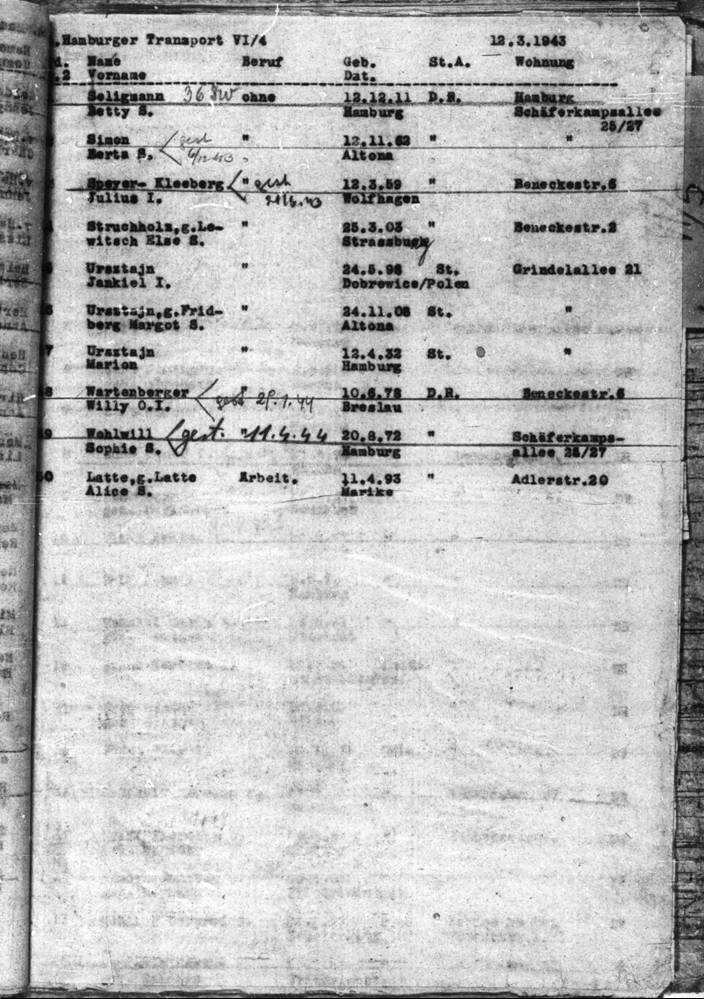 Hamburger Transport VI/4 12.3.1943
d. Name Beruf Geb. St.A. Wohnung
.2 Vorname Dat.
Seligmann ohne 12.12.11 D.R. Hamburg
Betty S. Hamburg Schäferkampsallee
25/27
Simon gest " 12.11.62 " "
Berta S. Altona
Speyer- Kleeberg " gest 12.3.59 " Beneckestr.6
Julius I. Wolfhagen
Struchholz,g.Le- " 25.3.03 " Beneckestr.2
witsch Else S. Strassburg
Ursztajn " 24.5.98 St. Grindelallee 21
Jankiel I. Dobrewice/Polen
Ursztajn,g.Frid- " 24.11.08 St. "
berg Margot S. Altona
7 Ursztajn " 12.4.32 St. "
Marion Hamburg
8 Wartenberger " gest 29.1.44 10.6.78 D.R. Beneckestr.6
Willy O.I. Breslau
9 Wohlwill gest. " 11.4.44 20.8.72 " Schäferkamps-
Sophie S. Hamburg allee 25/27
0 Latte,g.Latte Arbeit. 11.4.93 " Adlerstr.20
Alice S. Marike